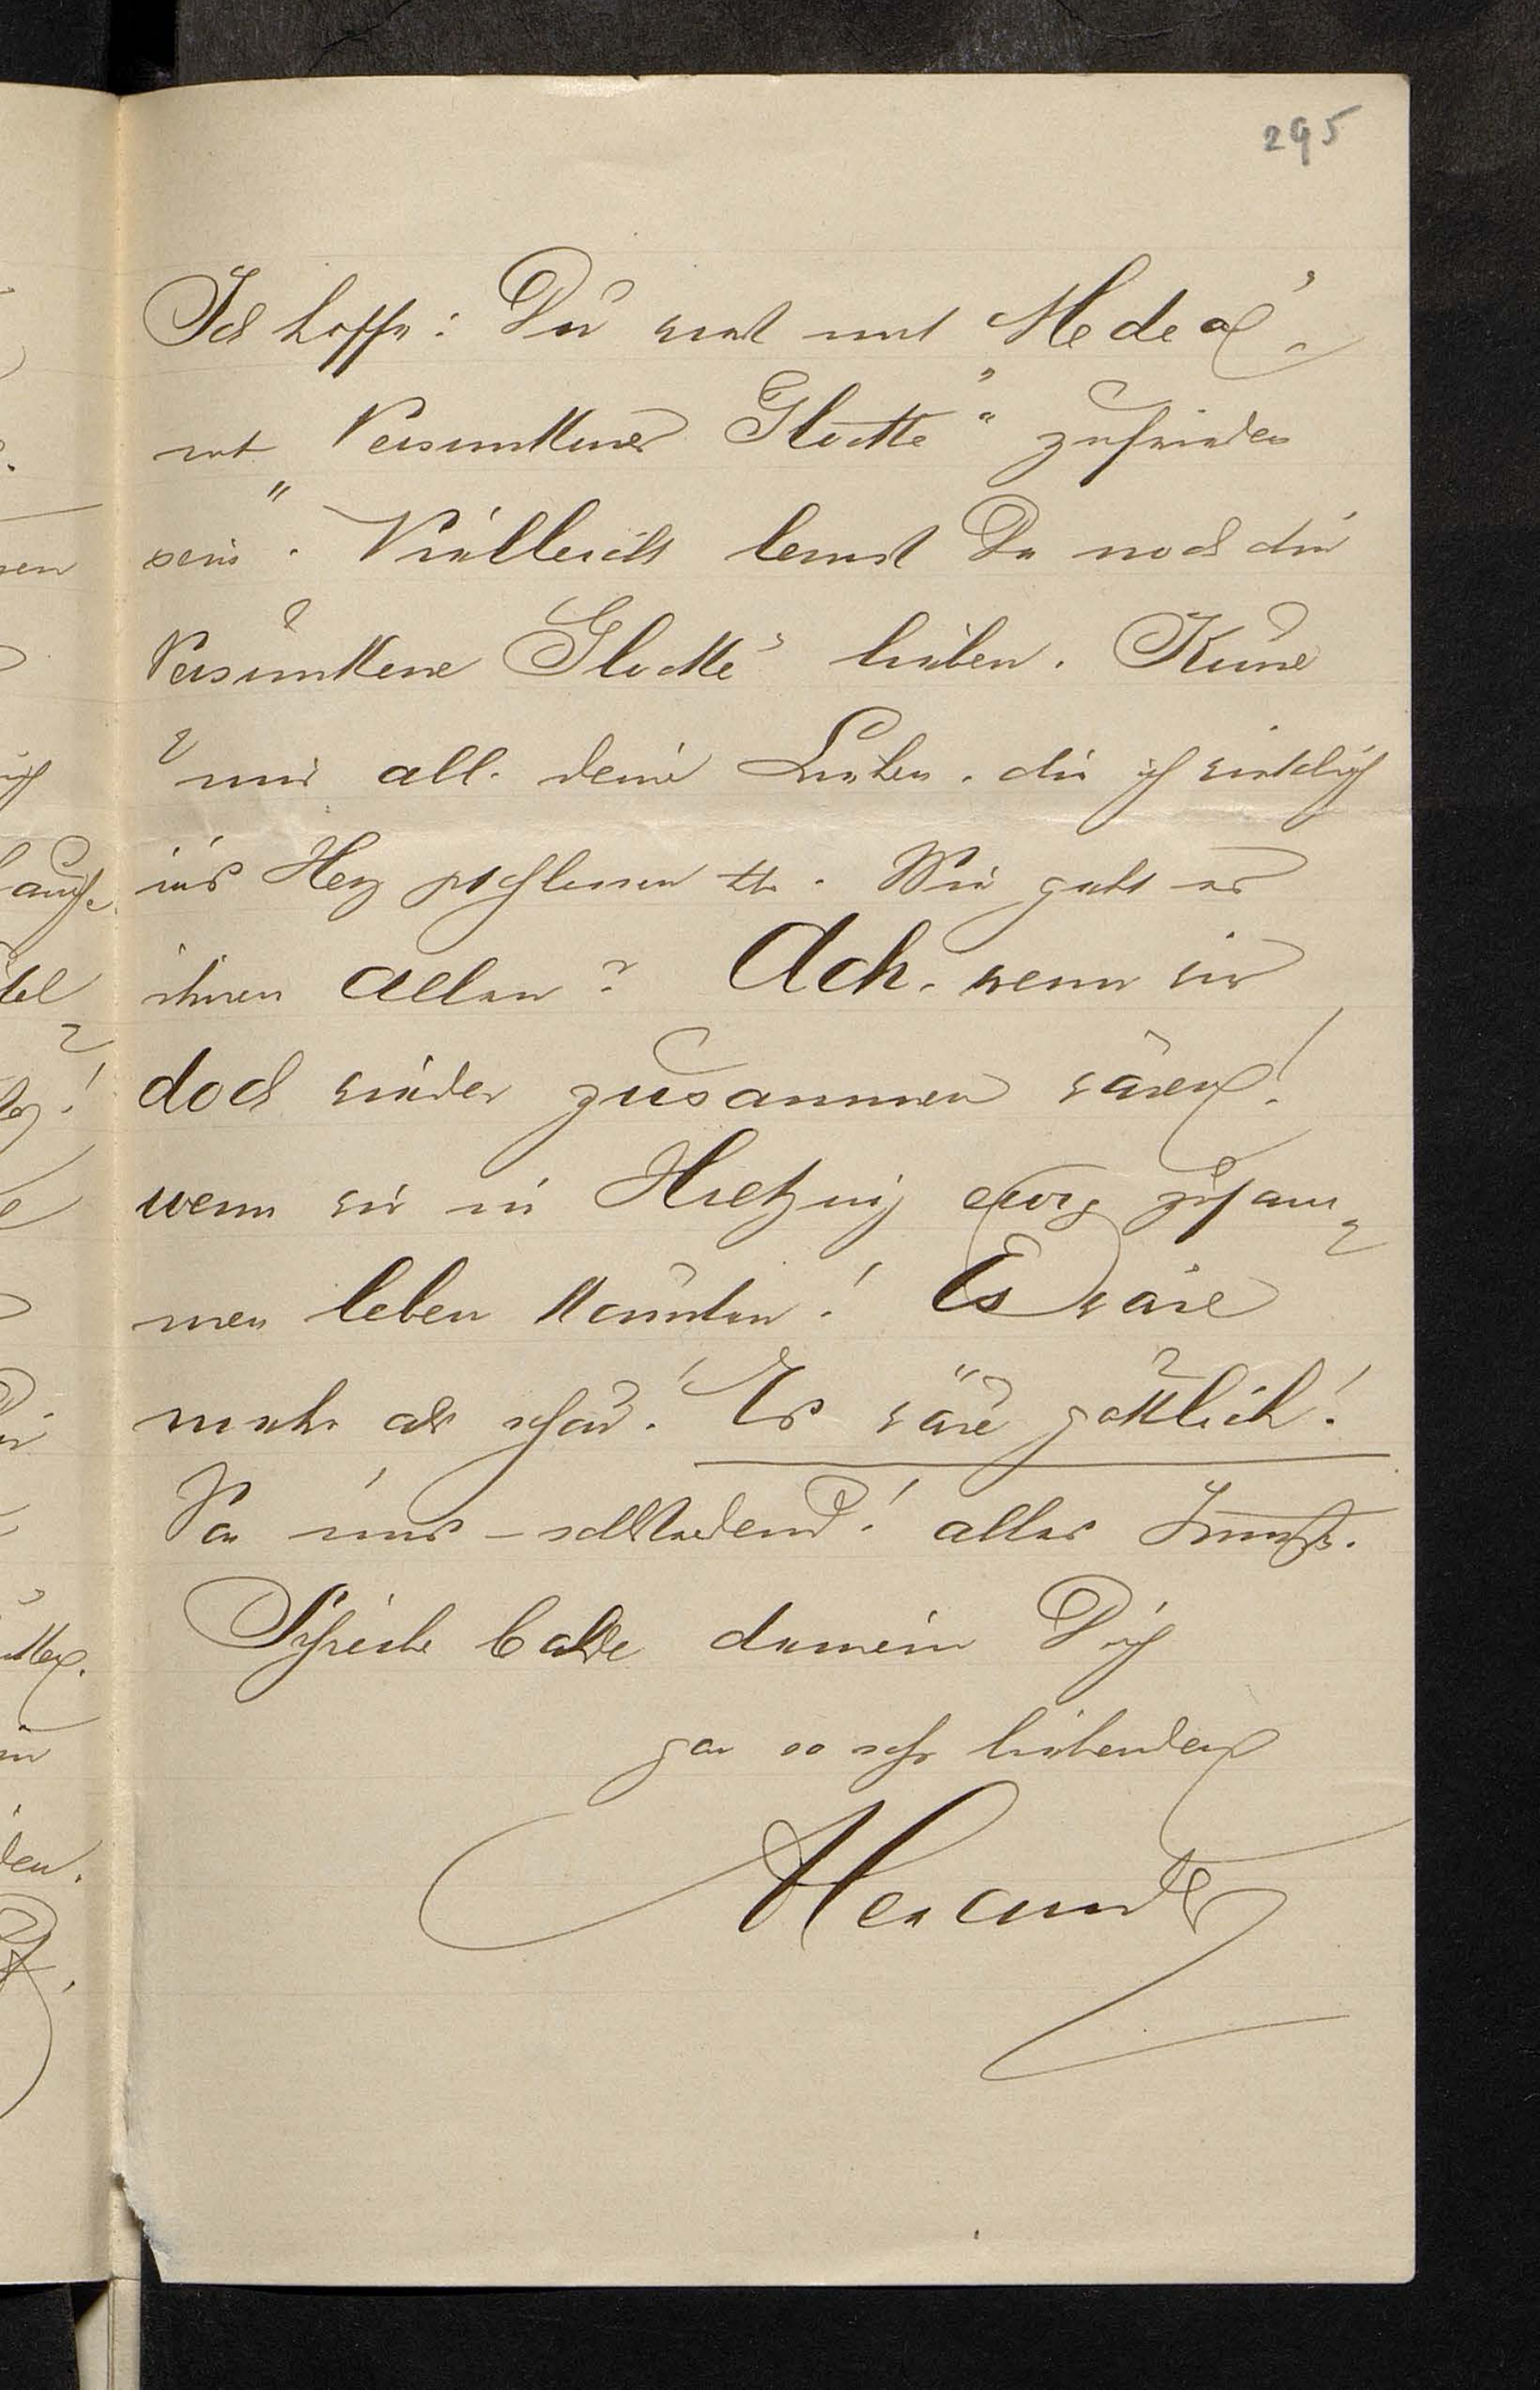 295
Ich hoffe: Du wirst mit „Medea",
mit „Versunkener Glocke" zufrieden
sein. Vielleicht lernst Du noch die
„Versunkene Glocke" lieben. Küsse
mir all' deine Lieben, die ich wirklich
ins Herz geschlossen. Wie geht es
ihnen Allen? Ach, wenn wir
doch wieder zusammen wären!
wenn wir in Hietzing ewig zusam-
men leben könnten! Es wäre
mehr als schön! Es wäre göttlich!
Von uns – alles
Schreibe balde deinem Dich
gar so sehr liebenden
Alexander